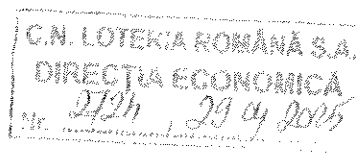 C.N. LOTERIA ROMÂNĂ S.A.
DIRECȚIA ECONOMICĂ
Nr. 2124, 29 2005